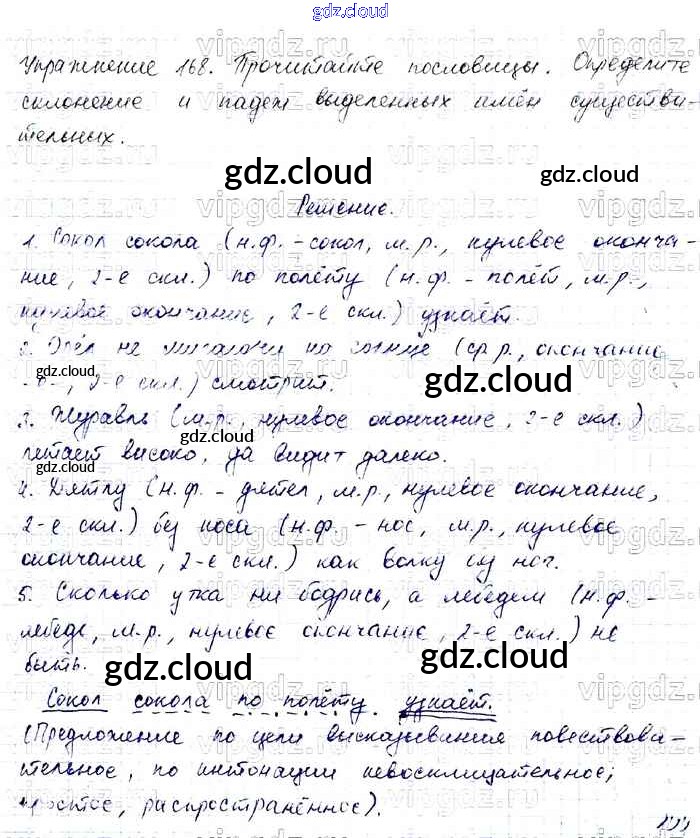 gdz.cloud
Упражнение 168. Прочитайте пословицы. Определите
склонение и падеж выделенных имён существи-
тельных.
gdz.cloud
gdz.cloud
Решение.
1. Сокол сокола (н.ф. - сокол, м.р., нулевое оконча-
ние, 2-е скл.) по полёту (н.ф. - полёт, м.р.,
нулевое окончание, 2-е скл.) узнаёт.
2. Орёл не мигаючи на солнце (ср.р., окончание
-е-, 2-е скл.) смотрит.
gdz.cloud
3. Журавль (м.р., нулевое окончание, 2-е скл.)
gdz.cloud
летает високо, да видит далеко.
gdz.cloud
4. Дятлу (н.ф. - дятел, м.р., нулевое окончание,
2-е скл.) без носа (н.ф. - нос, м.р., нулевое
окончание, 2-е скл.) как волку без ног.
5. Сколько утка ни бодрись, а лебедем (н.ф. -
лебедь, м.р., нулевое окончание, 2-е скл.) не
быть.
gdz.cloud
gdz.cloud
Сокол сокола по полёту узнаёт.
(Предложение по цели высказывание повествова-
тельное, по интонации невосклицательное;
простое, распространённое).